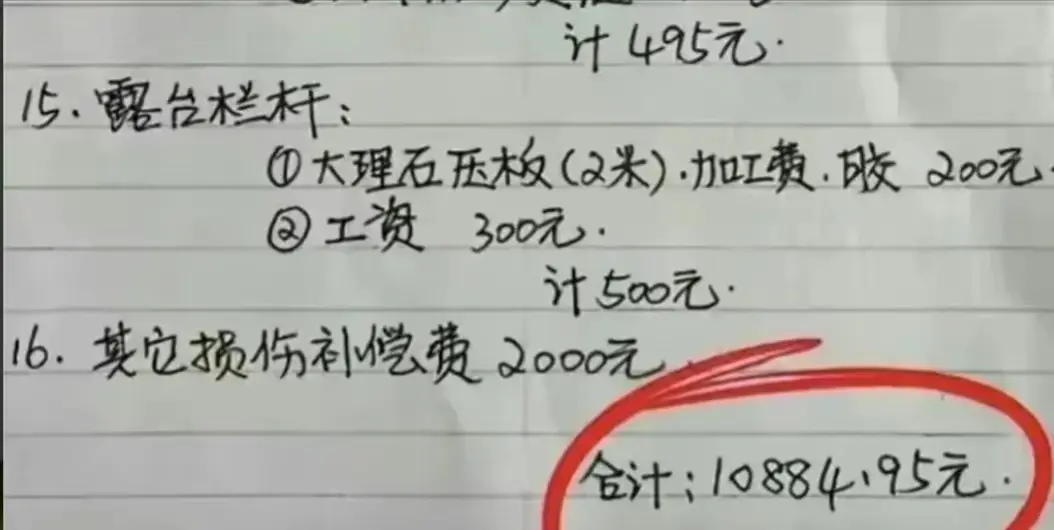 计 495元.
15. 露台栏杆:
① 大理石压板(2米).加工费.胶 200元.
② 工资 300元.
计 500元.
16. 其它损伤补偿费 2000元.
合计: 10884.95元.